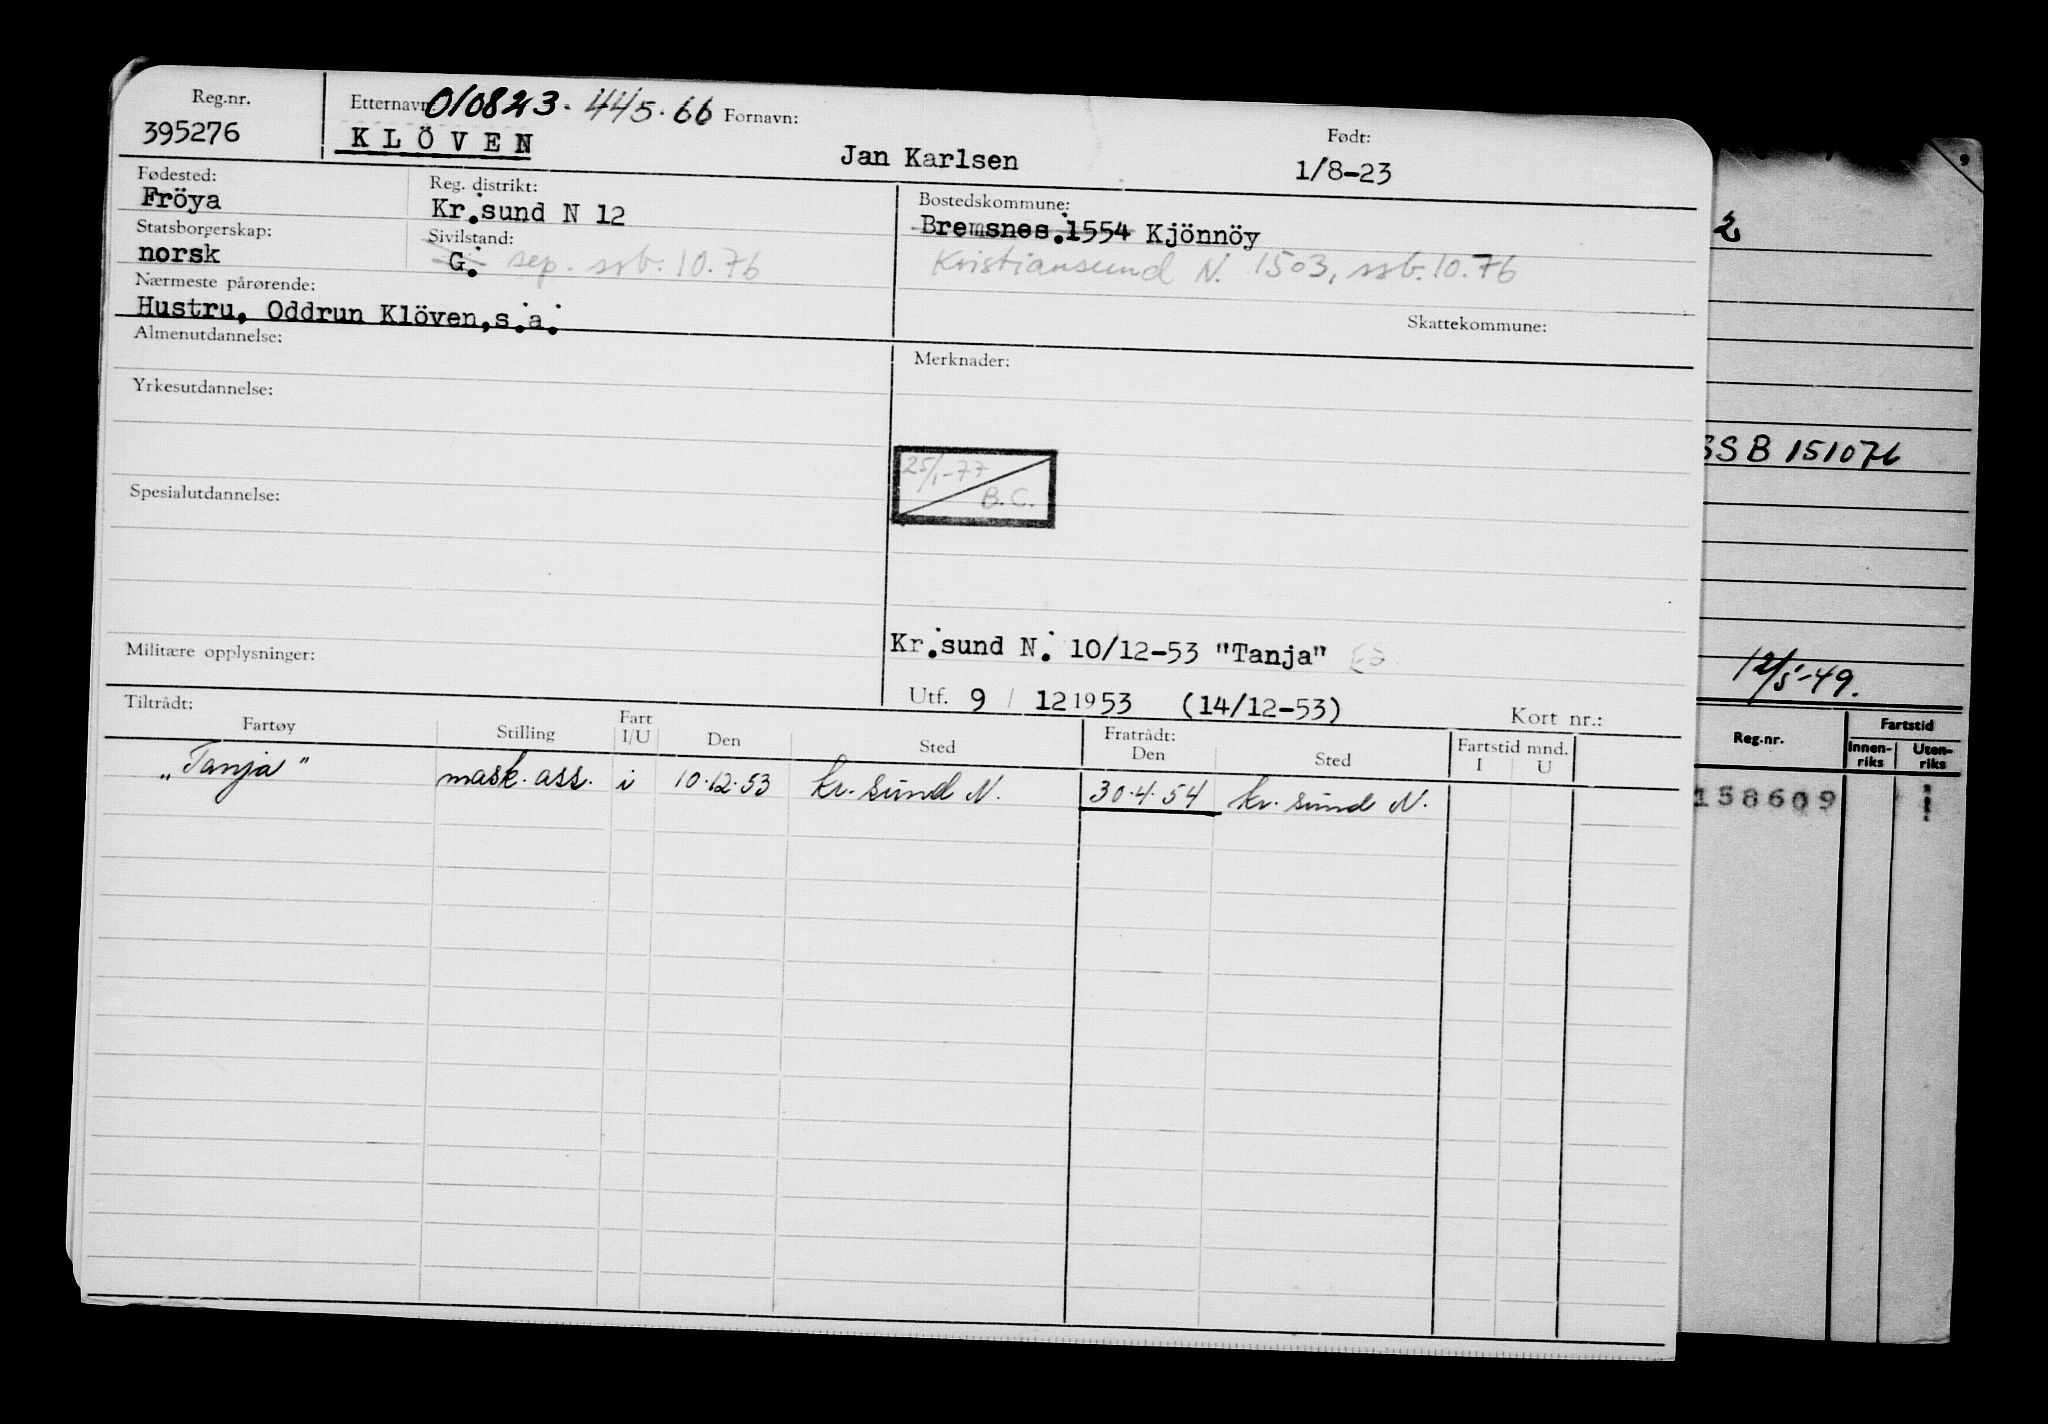 Reg.nr. Etternavn: 010823. 445.66 Fornavn: Født:
395276 KLÖVEN Jan Karlsen 1/8-23
Fødested: Reg. distrikt: Bostedskommune:
Fröya Kr.sund N 12 Bremsnes.1554 Kjönnöy
Statsborgerskap: Sivilstand:
norsk G. sep. ssb. 10.76 Kristiansund N. 1503, ssb. 10.76
Nærmeste pårørende:
Hustru, Oddrun Klöven,s.a. Skattekommune:
Almenutdannelse: Merknader:
Yrkesutdannelse:
25/1-77
B.C.
Spesialutdannelse:
Kr.sund N. 10/12-53 "Tanja"
Militære opplysninger:
Utf. 9 / 12 1953 (14/12-53) Kort nr.:
Tiltrådt: Fratrådt:
Fartøy Stilling Fart I/U Den Sted Den Sted Fartstid mnd. I U
„Tanja" mask. ass. i 10.12.53 kr. sund N. 30.4.54 kr. sund N.
9
2
SSB 151076
12/5-49.
Reg.nr. Fartstid
Innen-riks Uten-riks
158609